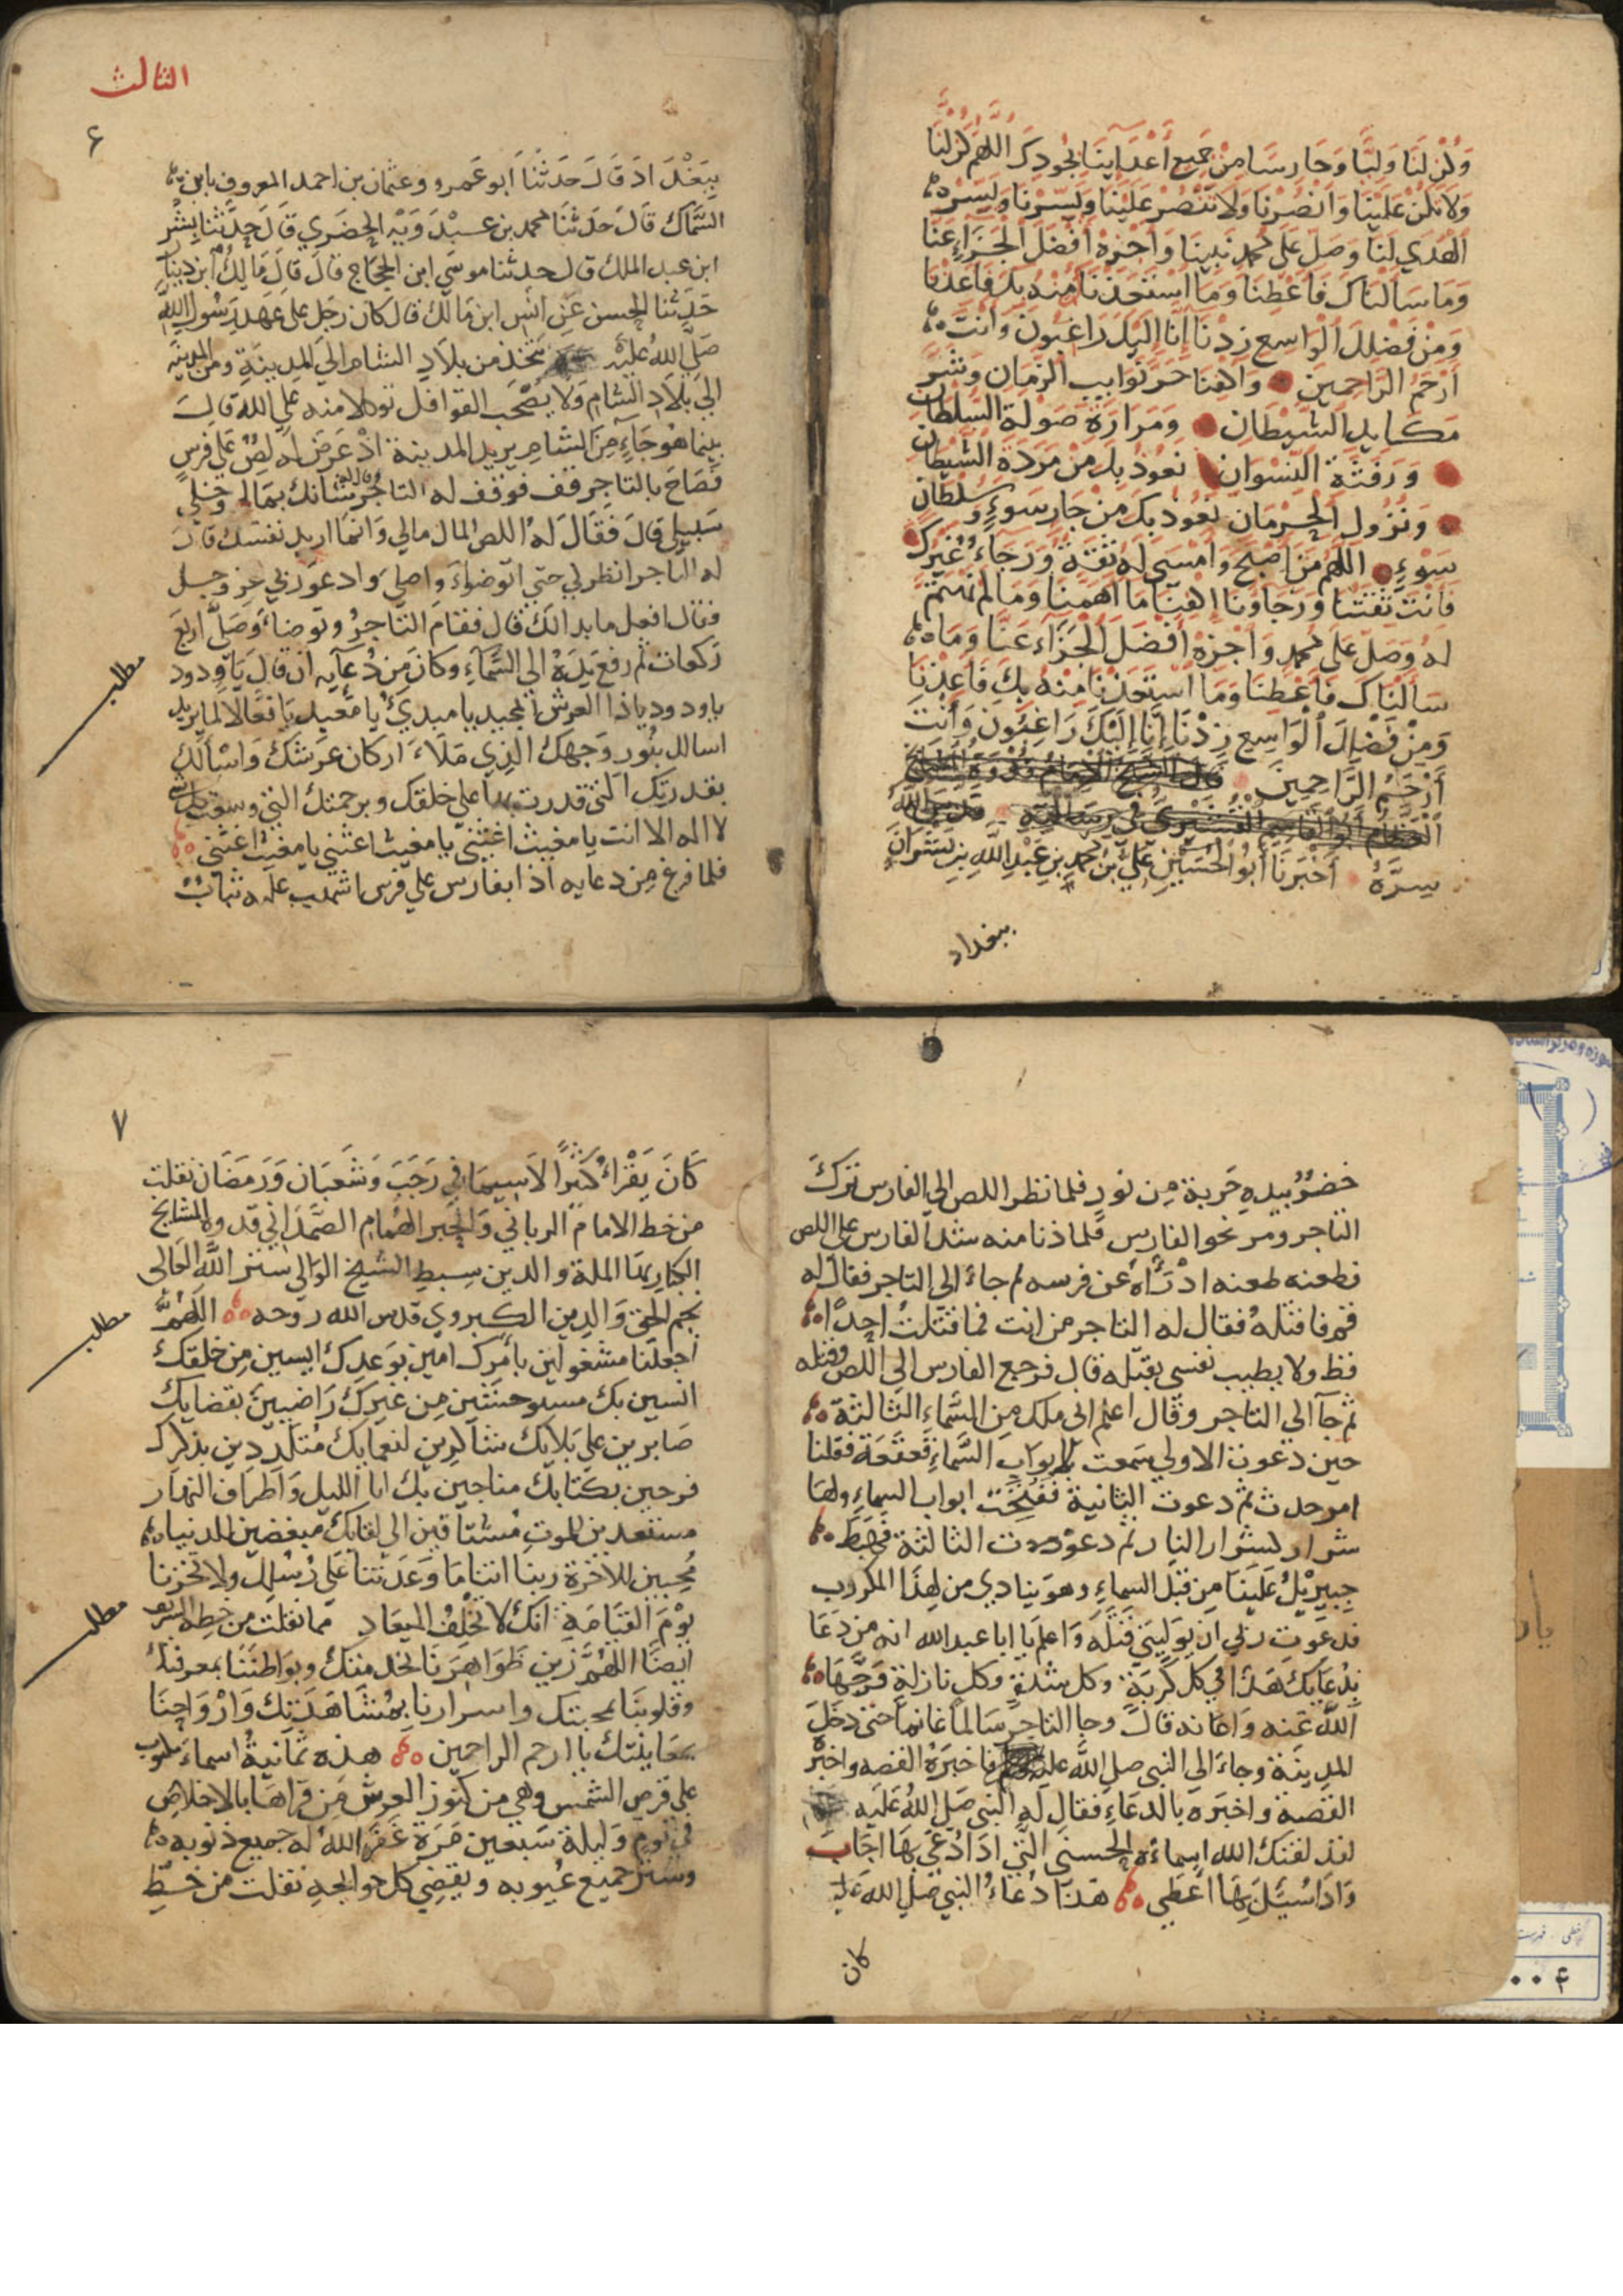 وَكُنْ لَنَا وَلِيًّا وَحَارِسًا مِنْ جَمِيعِ أَعْدَائِنَا بِجُودِكَ اللَّهُمَّ كُنْ لَنَا
وَلَا تَكُنْ عَلَيْنَا وَانْصُرْنَا وَلَا تَنْصُرْ عَلَيْنَا وَيَسِّرْنَا وَيَسِّرْ
الْهُدَي لَنَا وَصَلِّ عَلَى مُحَمَّدٍ نَبِيِّنَا وَاجْزِهْ أَفْضَلَ الْجَزَاءِ عَنَّا
وَمَا سَأَلْنَاكَ فَاعْطِنَا وَمَا اسْتَعَذْنَا مِنْهُ بِكَ فَاعِذْنَا
وَمِنْ فَضْلِكَ الْوَاسِعِ زِدْنَا إِنَّا إِلَيْكَ رَاغِبُونَ وَأَنْتَ
أَرْحَمُ الرَّاحِمِينَ وَاكْفِنَا نَوَايِبِ الزَّمَانِ وَشَرَّ
مَكَايِدِ الشَّيْطَانِ وَمَرَارَةِ صَوْلَةِ السُّلْطَانِ
النِّسْوَانِ نَعُوذُ بِكَ مِنْ مَرَدَةِ الشَّيْطَانِ
وَنُزُولِ الْحِرْمَانِ نَعُوذُ بِكَ مِنْ جَارِ سَوْءٍ وَسُلْطَانِ
سَوْءٍ اللَّهُمَّ مَنْ أَصْبَحَ وَأَمْسَى لَهُ ثِقَةٌ وَرَجَاءٌ غَيْرُكَ
فَأَنْتَ ثِقَتُنَا وَرَجَاؤُنَا إِكْفِنَا مَا أَهَمَّنَا وَمَا لَمْ
لَهُ وَصَلِّ عَلَى مُحَمَّدٍ وَاجْزِهْ أَفْضَلَ الْجَزَاءِ عَنَّا وَمَا
سَأَلْنَاكَ فَأَعْطِنَا وَمَا اسْتَعَذْنَا مِنْهُ بِكَ فَأَعِذْنَا
وَمِنْ فَضْلِكَ الْوَاسِعِ زِدْنَا إِنَّا إِلَيْكَ رَاغِبُونَ وَأَنْتَ
أَرْحَمُ الرَّاحِمِينَ قَالَ الشَّيْخُ الْإِمَامُ قُدْوَةُ
أَبُو الْقَاسِمِ الْقُشَيْرِي فِي رِسَالَتِهِ
سِرَّهُ أَخْبَرَنَا أَبُو الْحُسَيْنِ عَلِيُّ بْنُ مُحَمَّدِ بْنِ عَبْدِ اللَّهِ بْنِ بِشْرَانَ
ببغداد
الثالث
۶
بِبَغْدَادَ قَالَ حَدَّثَنَا أَبُو عَمْرو وعثمان بن احمد المعروف بابن
السَّمَاكَ قَالَ حَدَّثَنَا محمد بن عَبْدَوَيْهِ الحَضَرِي قَالَ حَدَّثَنَا بِشْر
ابن عبد الملك قال حدثنا موسي ابن الحجاج قال قَالَ مَالِكُ ابن دينار
حَدَّثَنَا الحسن عن انس ابن مالك قال كان رجل علي عهد رَسُولِ اللَّه
صَلَّي اللهُ عَلَيْهِ من بلاد الشام الي المدينة ومن المدينه
الي بلاد الشام وَلَا يَصْحَب القوافل توكلا منه علي الله قال
بينما هُو جَاءٍ مِنَ الشام يريد المدينة اذ عَرَضَ له لِصٌّ علي فرسٍ
فَصَاحَ بالتاجر قف فوقف له التاجر وقال له شانك بمالي وخلي
سبيلي قال فقال له اللص المال مالي وانما اريد نفسك قال
له التاجر انظرني حتي اتوضاءَ واصلي وادعو ربي عز وجل
فقال افعل ما بدا لك قال فقام التاجر وتوضاء وصلي اربع
ركعات ثم رفع يَدَهُ الي السَّمَاءِ وكان مِن دُعَايِه ان قال يا ودود
يا ودود يا ذا العرش المجيد يا مبدئ يا معيد يا فعّالا لما يريد
اسالك بنُور وَجهِك الذِي مَلَاءَ اركان عرشك وَاسْألك
بقدرتك التي قدرت بها علي خلقك وبرحمتك التي وسعت كل شي
لا اله الا انت يا مغيث اغثني يا مغيث اغثني يا مغيث اغثني
فلما فرغ مِن دعايه اذا بفارس علي فرس اشهب عليه ثياب
مطلب
خُضْرٌ بيده حَربة من نور فلما نظر اللص الي الفارس تَرَكَ
التاجر ومر نحو الفارس فلما دنا منه شد الفارس علي اللص
فطعنه طعنه اذرَاهُ عن فرسه ثم جاءَ الي التاجر فقال له
قم فاقتله فقال له التاجر من انت فما قتلتُ احدًا
قط ولا يطيب نفسي بقتله قال فرجع الفارس الي اللص وقتله
ثم جآ الي التاجر وقال اعلم اني ملك من السَّمَاءِ الثَّالثة
حين دعوت الاولي سمعت لابواب السَّمَاءِ قعقعة فقلنا
امر حدث ثم دعوت الثانية فَفُتِحَت ابواب السماءِ ولها
شرار كشرار النار ثم دعوت الثالثة فهَبَطَ
جبرِيلُ عَلَيْنَا مِن قبل السماءِ وهو ينادي من لهذا المكروب
فدعوت ربي ان يوليني قَتْلَهُ وَاعلم يا ابا عبد الله انه من دَعَا
بِدُعَايِكَ هَذَا في كل كُرْبَةٍ وكل شدةٍ وكل نازلةٍ فَرَّجَهَا
اللَّه عَنه وَاعانه قالَ وجا التاجر سَالماً غانماً حَتي دخل
المدينة وجاءَ الي النبي صلي اللَّه عليه فاخبَرَهُ القصه واخبره
القصة واخبره بالدعَاءِ فقال له النبي صَلي اللهُ عَلَيه
لقد لقنك الله اسماءَه الحسني التي اذا دُعِيَ بِهَا اجَابَ
وَاذا سُئِلَ بِهَا اعطي هَذَا دُعَاءُ النبي صلي الله عَلَيه
كان
۷
كَانَ يَقْرَاءُ كَثيرًا لَاسِيمَا في رَجَبَ وَشَعبَان وَرَمَضَان نقلت
من خط الامام الرباني والحبر الهُمَام الصَّمَدَاني قدوة المشايخ
الكبار الملة والدين سبط الشيخ الوالي سر اللَّه
نجم الحق والدين الكبروي قدس الله روحه اللَّهُمَّ
اجعلنا مشغولين بأمرك امنين بوعدك ايسين مِن خلقك
انسين بك مستوحشين مِن غيرك رَاضيين بقضايك
صَابرين علي بَلايك شاكرين لنعمايك مُتلذذين بذكرك
فرحين بكتابك مناجين بك انا الليل وَاطراف النهار
مستعدين للموت مُشتاقين الي لقايك مبغضين للدنيا
مُحبين للاخرة ربنا اتنا مَا وَعَدتنا عَلي رُسُلِك ولا تخزنا
يَوْمَ القيامة انك لا تخلف الميعاد مما نقلت من خطه الشريف
ايضًا اللهُمَّ زين ظَوَاهِرَنا بخدمتك وبواطننا بمعرفتك
وقلوبنا بمحبتك واسرارنا بمُشَاهَدَتِكَ وَارْوَاحِنَا
بمعَاينتك يا ارحم الراحمين هذه ثمانيةُ اسماءَ مكتوب
علي قرص الشمس وهي من كنوز العرش مَن قراهَا بالاخلاص
في يوم وَليلة سَبعين مَرَة غَفَر اللهُ له جميع ذنوبه
وستر جميع عُيوبه ويقضي كل حوايجه نقلت من خَطِّ
مطلب
مطلب